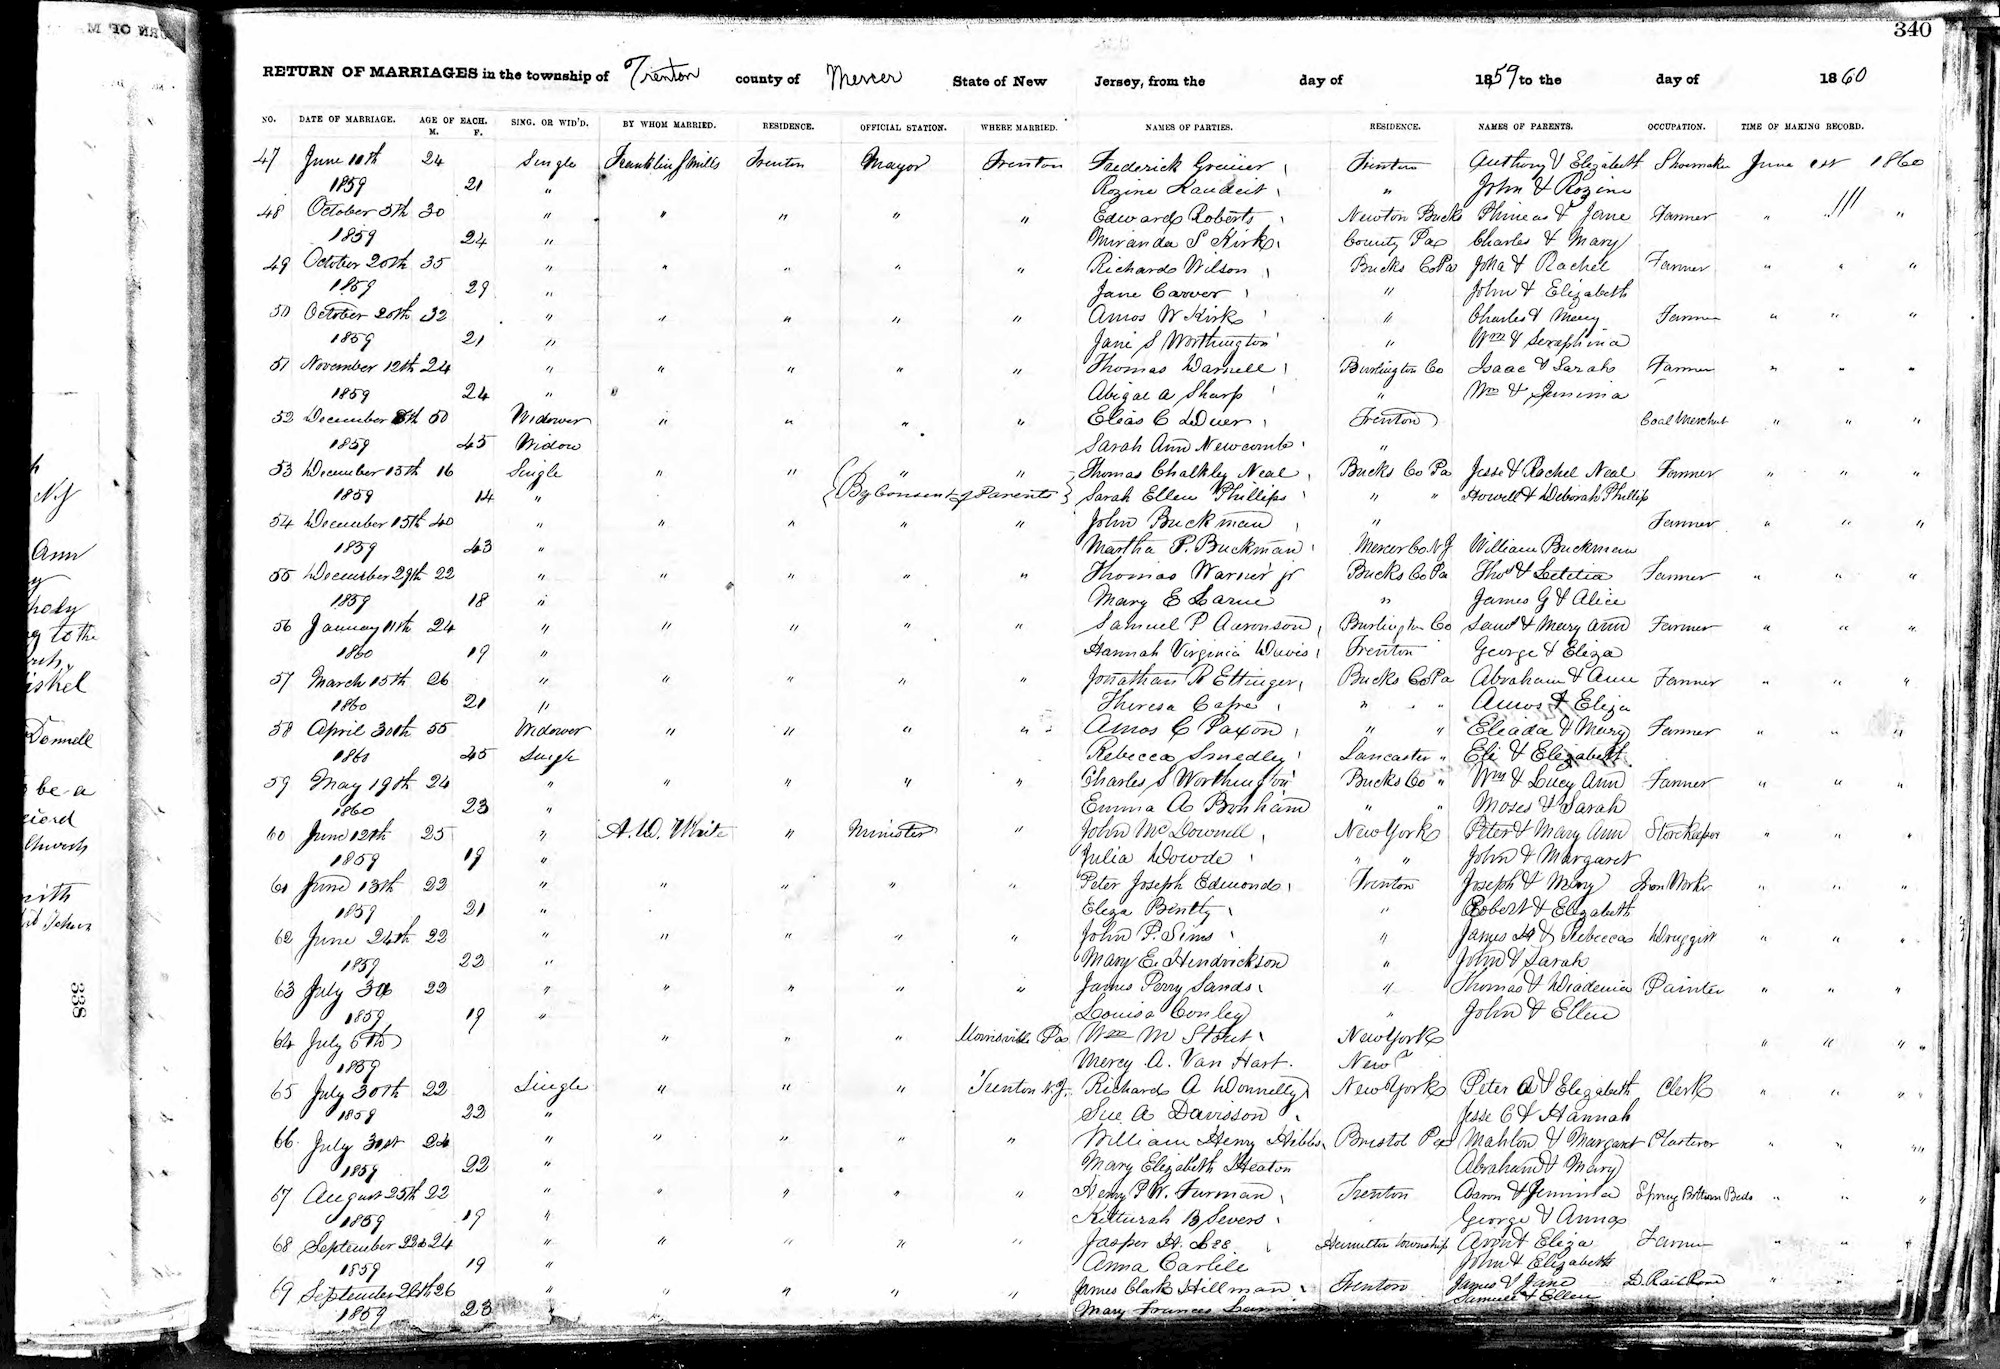 340
RETURN OF MARRIAGES in the township of Trenton county of Mercer State of New Jersey, from the day of 1859 to the day of 1860
NO. DATE OF MARRIAGE. AGE OF EACH. M. F. SING. OR WID'D. BY WHOM MARRIED. RESIDENCE. OFFICIAL STATION. WHERE MARRIED. NAMES OF PARTIES. RESIDENCE. NAMES OF PARENTS. OCCUPATION. TIME OF MAKING RECORD.
47 June 24 Single Franklin S Mills Trenton Mayor Trenton Frederick Trenton Anthony & Elizabeth Shoemaker June 1st 1860
1859 21 " Rozine " John & Rozine
48 October 5th 30 " " " " " Edward Roberts Newton Bucks Phineas & Jane Farmer " "
1859 24 " Miranda S Kirk County Pa Charles & Mary
49 October 20th 35 " " " " " Richard Wilson Bucks Co Pa & Rachel Farmer " " "
1859 29 " Jane Carver " John & Elizabeth
50 October 20th 32 " " " " " Amos W Kirk " Charles & Mary Farmer " " "
1859 21 " Jane S Worthington " Wm & Seraphina
51 November 12th 24 " " " " " Thomas Darnell Burlington Co Isaac & Sarah Farmer " " "
1859 24 " Abigal A Sharp " Wm & Jemima
52 December 50 Widower " " " " Elias C Duer Trenton Coal Merchant " " "
1859 45 Widow Sarah Ann Newcomb "
53 December 15th 16 Single " " " " Thomas Chalkley Neal Bucks Co Pa Jesse & Rachel Neal Farmer " " "
1859 14 " {By Consent of Parents} Sarah Ellen Phillips " " Howell & Deborah Phillips
54 December 15th 40 " " " " " John Buckman " Farmer " " "
1859 43 " Martha P. Buckman Mercer Co N J William Buckman
55 December 29th 22 " " " " " Thomas Warner jr Bucks Co Pa Thos & Letitia Farmer " " "
1859 18 " Mary E Larue " James G & Alice
56 January 11th 24 " " " " " Samuel P Aaronson Burlington Co Saml & Mary Ann Farmer " " "
1860 19 " Hannah Virginia Davis Trenton George & Eliza
57 March 15th 26 " " " " " Jonathan R Ettinger Bucks Co Pa Abraham & Ann Farmer " " "
1860 21 " Theresa " " Amos & Eliza
58 April 30th 55 Widower " " " " Amos C Paxon " " Eliada & Mary Farmer " " "
1860 45 Single Rebecca Smedley Lancaster " Eli & Elizabeth
59 May 19th 24 " " " " " Charles S Worthington Bucks Co " Wm & Lucy Ann Farmer " " "
1860 23 " Emma A Bonham " " Moses & Sarah
60 June 12th 25 " A. D. White " Minister " John McDonnell New York Peter & Mary Ann Storekeeper " " "
1859 19 " Julia Dowde " " John & Margaret
61 June 13th 22 " " " " " Peter Joseph Edmonds Trenton Joseph & Mary Iron Worker " " "
1859 21 " Eliza Bently " Robert & Elizabeth
62 June 24th 22 " " " " " John P. Sims " James H & Rebecca Druggist " " "
1859 22 " Mary E. Hendrickson " John & Sarah
63 July 3d 22 " " " " " James Perry Sands " Thomas & Diadema Painter " " "
1859 19 " Louisa Conley " John & Ellen
64 July 6th " " " Morrisville Pa Wm M Stout New York " " "
1859 Mercy A. Van Hart. New
65 July 30th 22 Single " " " Trenton N.J. Richard A Donnelly New York Peter A & Elizabeth Clerk " " "
1859 22 " Sue A Davisson Jesse C & Hannah
66 July 31st 24 " " " " " William Henry Hibbs Bristol Pa Mahlon & Margaret Plasterer " " "
1859 22 " Mary Elizabeth Heaton Abraham & Mary
67 August 25th 22 " " " " " Henry P W. Furman Trenton Aaron & Jemima Spring Bottom Beds " " "
1859 19 " Kitturah B Severs George & Anna
68 September 22d 24 " " " " " Jasper H. Lee Hamilton township & Eliza Farmer " " "
1859 19 " Anna Carlile John & Elizabeth
69 September 26th 26 " " " " " James Clark Hillman Trenton James & Jane D. Rail Road " "
1859 23 Mary Frances Samuel & Ellen
N.J
Ann
to the
Donnell
be a
Church
338